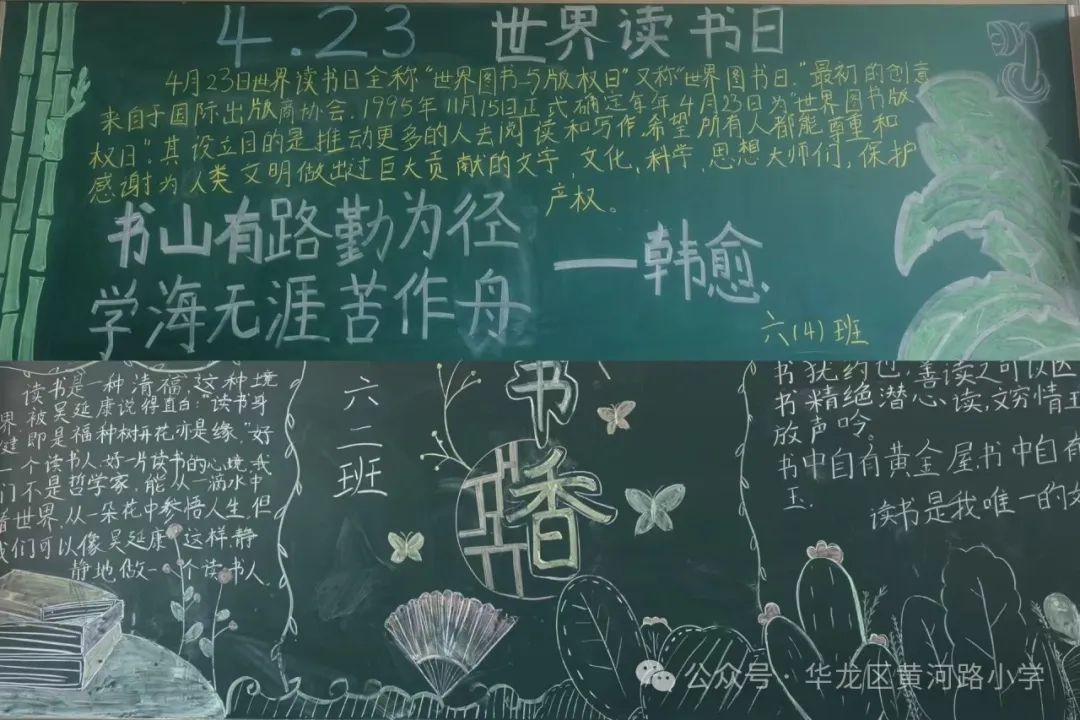 4.23 世界读书日
4月23日世界读书日全称“世界图书与版权日”又称“世界图书日.”最初的创意
来自于国际出版商协会.1995年11月15日正式确定每年4月23日为“世界图书版
权日”.其设立目的是推动更多的人去阅读和写作.希望所有人都能尊重和
感谢为人类文明做出过巨大贡献的文学,文化,科学,思想大师们,保护
产权。
书山有路勤为径
学海无涯苦作舟
——韩愈.
六(4)班
读书是一种清福,这种境
界,被吴延康说得直白:“读书身
健即是福种树开花亦是缘.”好
一个读书人.好一片读书的心境.我
们不是哲学家,能从一滴水中
看世界,从一朵花中参悟人生,但
我们可以像吴延康这样,静
静地做一个读书人.
六二班
书香
书犹药也,善读之可以医
书精绝潜心读,文穷情
放声吟。
书中自有黄金屋.书中自有
玉.
读书是我唯一的
公众号·华龙区黄河路小学